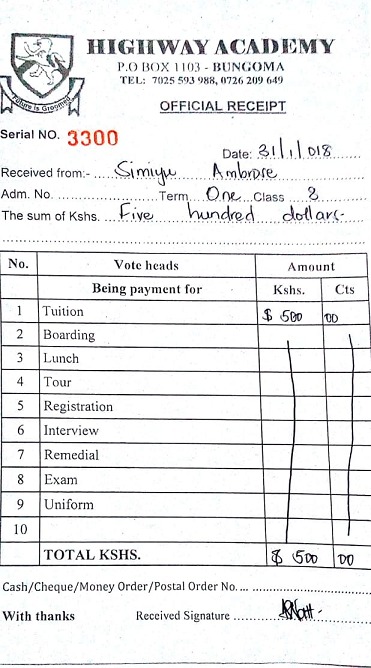 HIGHWAY ACADEMY
P.O BOX 1103 - BUNGOMA
TEL: 7025 593 988, 0726 209 649
Future is Groomed
OFFICIAL RECEIPT
Serial NO. 3300
Date: 31/1/018
Received from:- Simiyu Ambrose
Adm. No. Term One Class 8
The sum of Kshs. Five hundred dollars-
No. Vote heads Amount
Being payment for Kshs. Cts
1 Tuition $ 500 00
2 Boarding
3 Lunch
4 Tour
5 Registration
6 Interview
7 Remedial
8 Exam
9 Uniform
10
TOTAL KSHS. $ 500 00
Cash/Cheque/Money Order/Postal Order No.
With thanks Received Signature